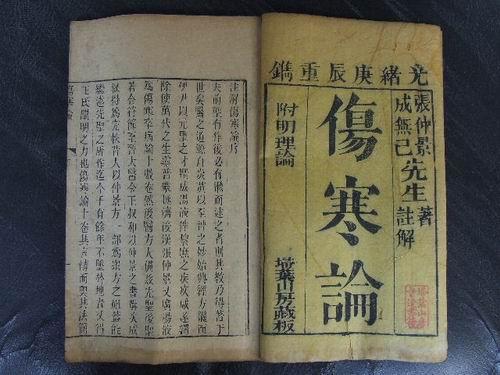 光緒庚辰重鐫
張仲景著
成無己先生註解
傷寒論
附明理論
埽葉山房藏板
註解傷寒論序
夫前聖有作後必有繼而述之者則其教乃得著于
世矣醫之道源自炎黃以至神之妙始興經方繼而
伊尹以元聖之才撰成湯液俾黎庶之疾疢咸遂蠲
除使萬代之生靈普蒙拯濟後漢張仲景又廣湯液
為傷寒卒病論十數卷然後醫方大備茲先聖後聖
若合符節至晉太醫令王叔和以仲景之書撰次成
敘得為完秩昔人以仲景方一部為眾方之祖蓋能
繼述先聖之所作迄今千有餘年不墜於地者又得
王氏闡明之力也傷寒論十卷其言精而奧其法簡